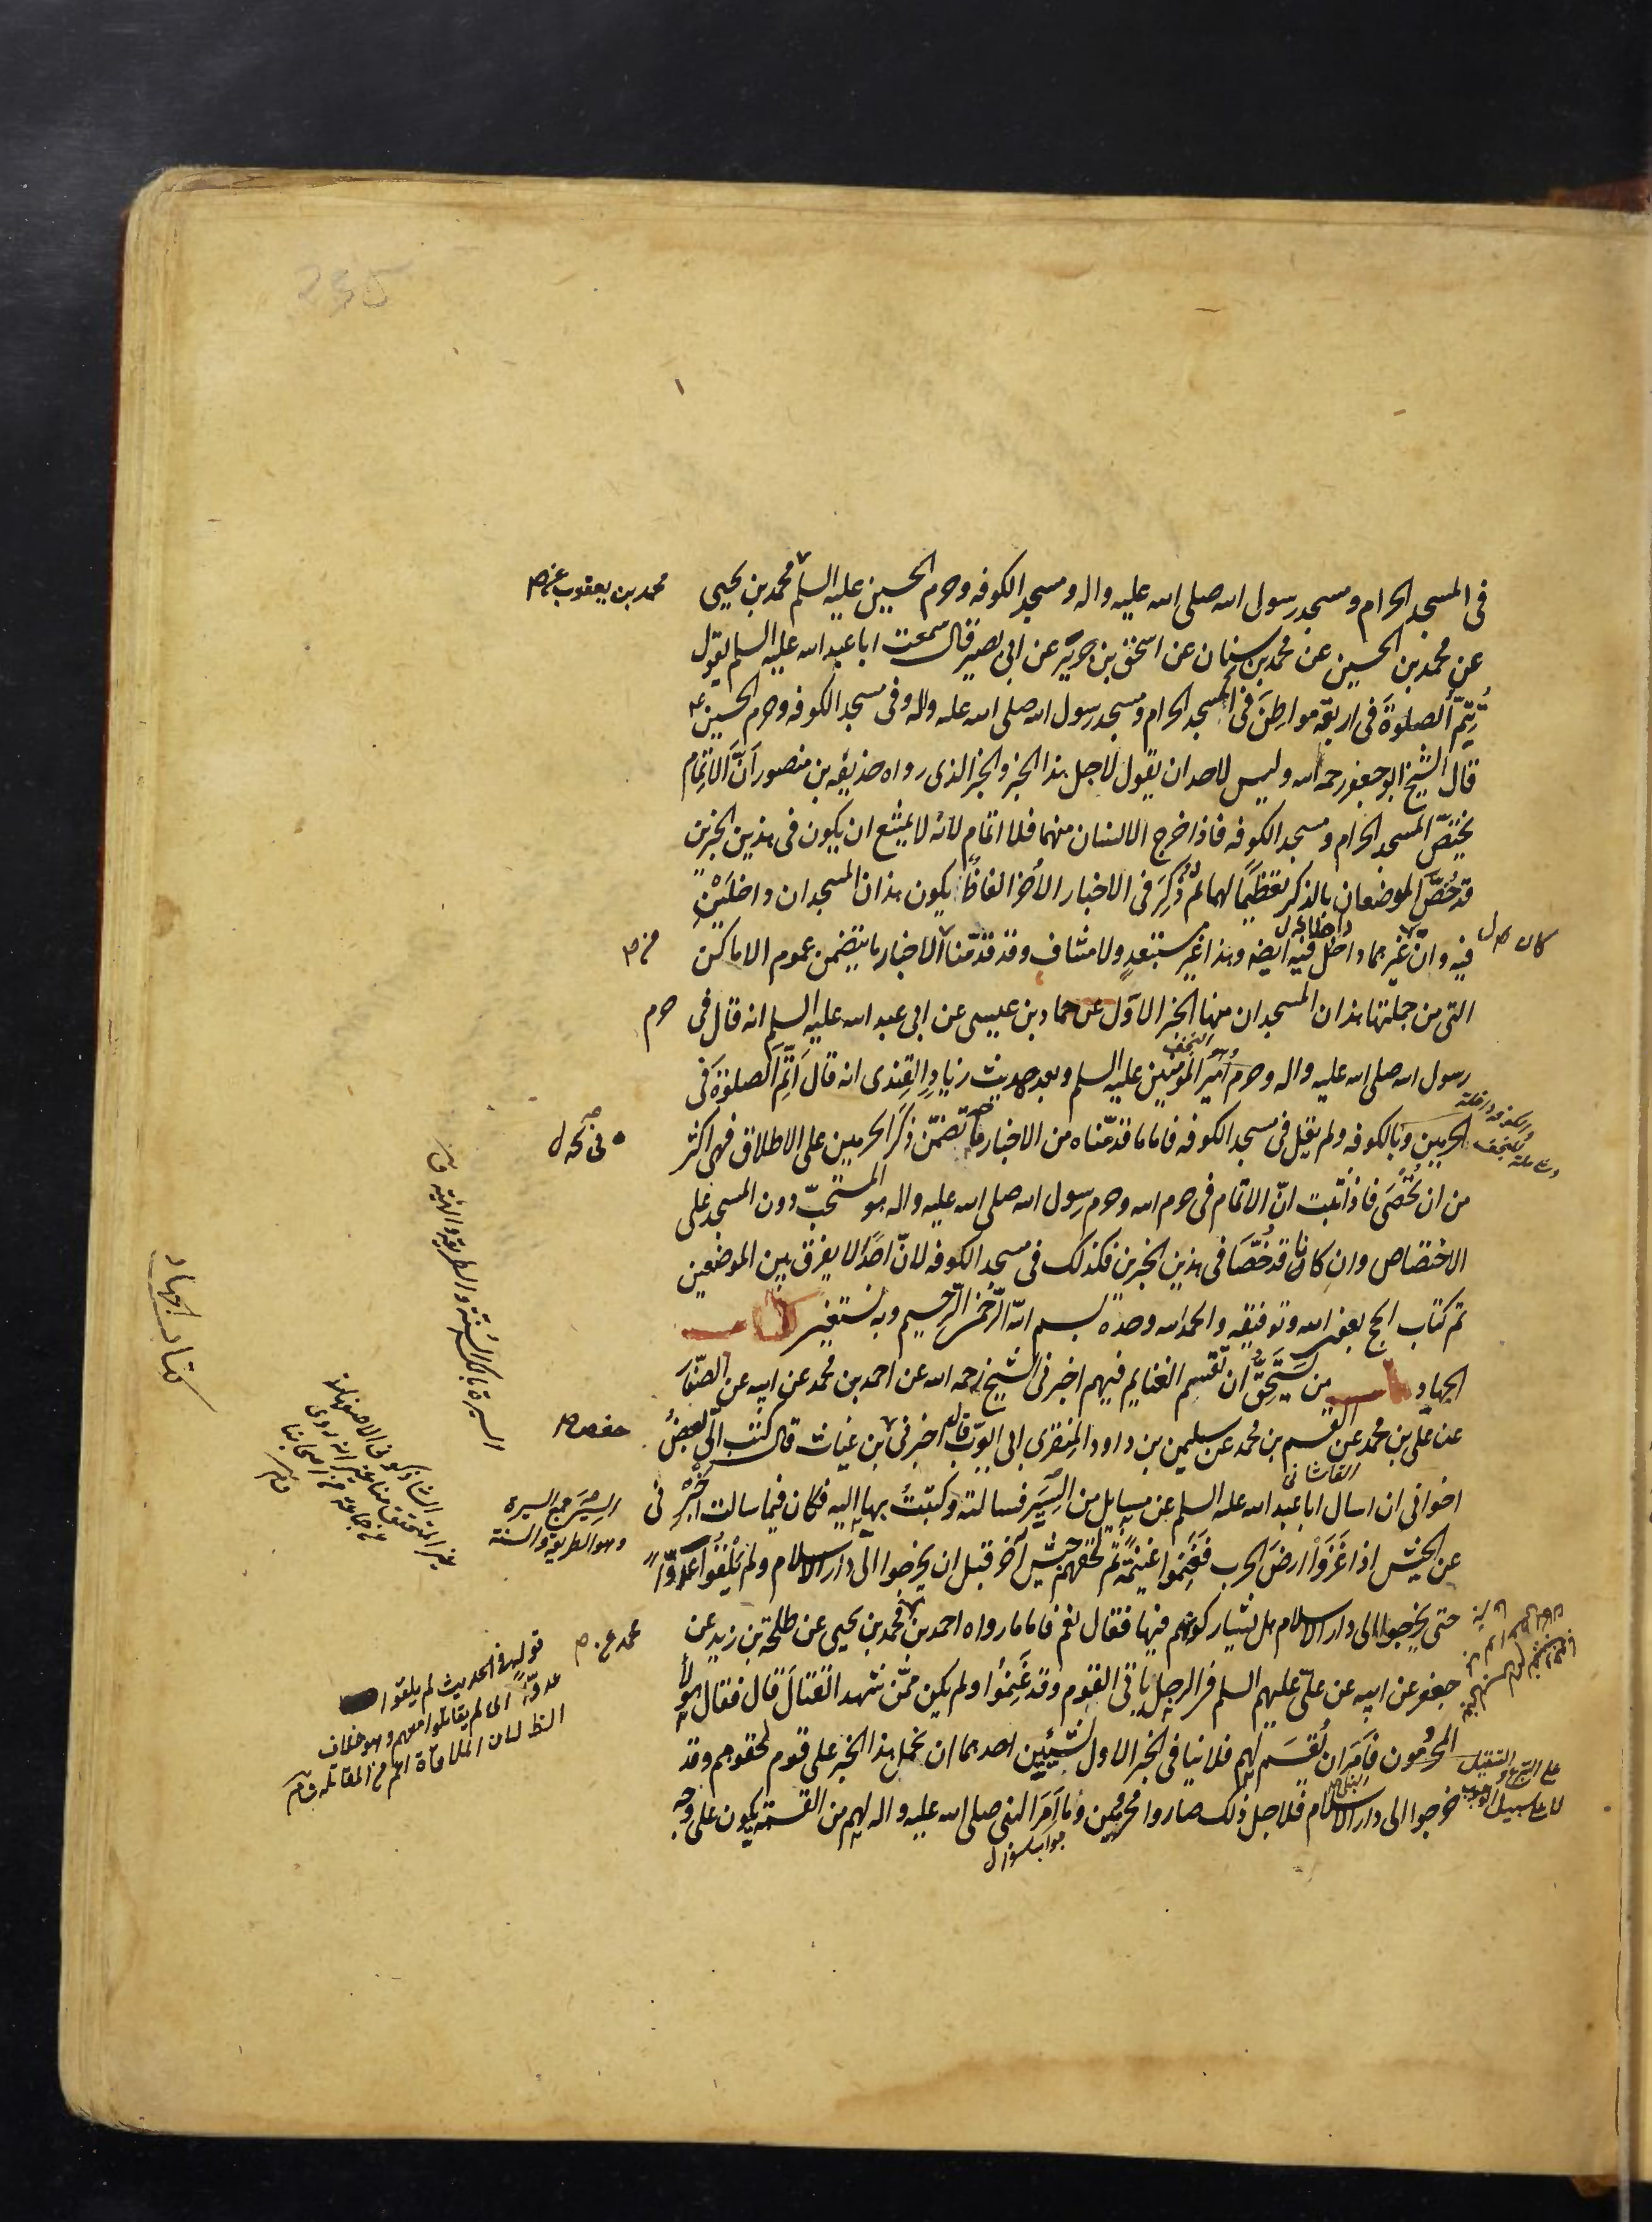 فى المسجد الحرام ومسجد رسول الله صلى الله عليه واله ومسجد الكوفه وحرم الحسين عليه السلم محمد بن يحيى
محمد بن يعقوب عن صح
عن محمد بن الحسين عن محمد بن سنان عن اسحق بن حريز عن ابى بصير قال سمعت ابا عبد الله عليه السلم يقول
تُتِمّ الصلوة فى اربعة مواطن فى المسجد الحرام ومسجد رسول الله صلى الله عليه واله وفى مسجد الكوفه وحرم الحسين ع
قال الشيخ ابو جعفر رحمه الله وليس لاحد ان يقول لاجل هذا الخبر والخبر الذى رواه حذيفه بن منصور انّ الاتمام
يختصّ المسجد الحرام ومسجد الكوفه فاذا خرج الانسان منهما فلا اتمام لانه لا يمتنع ان يكون فى هذين الخبرين
قد خُصّ الموضعان بالذكر تعظيمًا لهما ثم ذُكِرَ فى الاخبار الأُخَر الفاظًا يكون هذان المسجدان داخلَيْنِ
فيه وانّ غيرهما داخل فيه ايضه وهذا غير مستبعد ولا متناف وقد قدّمنا الاخبار ما يتضمن عموم الاماكن
من صح
التى من جملتها هذان المسجدان منها الخبر الاوّل عن حماد بن عيسى عن ابى عبد الله عليه السلم انه قال فى حرم
رسول الله صلى الله عليه واله وحرم امير المؤمنين عليه السلم وبعد حديث زياد القندى انه قال أتمّ الصلوة فى
النجف
الحرمين وبالكوفه ولم يقل فى مسجد الكوفه فاما ما قدّمناه من الاخبار تضمّن ذكر الحرمين على الاطلاق فهى اكثر
من ان تُحْصَى فاذا ثبت انّ الاتمام فى حرم الله وحرم رسول الله صلى الله عليه واله هو المستحبّ دون المسجد على
الاختصاص وان كانا قد خُصّا فى هذين الخبرين فكذلك فى مسجد الكوفه لانّ احدًا لا يفرق بين الموضعين
تم كتاب الحج بعون الله وتوفيقه والحمد لله وحده بسم الله الرحمن الرحيم وبه نستعين كتاب
الجهاد باب من يستحقّ ان تقسم الغنايم فيهم اخبرنى الشيخ رحمه الله عن احمد بن محمد عن ابيه عن الصفّار
عن على بن محمد عن القسم بن محمد عن سليمن بن داود المنقرى ابى ايوب قال اخبرنى بن غياث قال كتب الىّ بعضُ
حفص صح
القاشانى
اخوانى ان اسال ابا عبد الله عليه السلم عن مسايل من السِيَر فسالته وكتبتُ بها اليه فكان فيما سالت اخْبِرْنى
عن الجيش اذا غَزَوْا ارضَ الحرب فغَنِموا غنيمةً ثم لحقهم جيش آخر قبل ان يخرجوا الى دار الاسلام ولم يلقوا عدوًّا
حتى يخرجوا الى دار الاسلام هل يشاركونهم فيها فقال نعم فاما ما رواه احمد بن محمد بن يحيى عن طلحة بن زيد عن
محمد عن صح
جعفر عن ابيه عن علىّ عليهم السلم فى الرجل ياتى القوم وقد غَنِمُوا ولم يكن ممّن شهد القتال قال فقال هولاء
المحرومون فأمَرَ ان تُقسَم لهم فلا ينافى الخبر الاول لشيئين احدهما ان نحمل هذا الخبر على قوم لحقوهم وقد
خرجوا الى دار الاسلام فلاجل ذلك صاروا محرومين وما اَمَرَ النبى صلى الله عليه واله لهم من القسمة يكون على وجه
جواب سؤال
السِيَر جمع السيرة
وهو الطريقة والسنة
السيرة بالكسر السُنّة والطريقة والهيئة ق
قوله فى الحديث لم يلقوا
عدوًّا اى لم يقاتلوا معهم وهو خلاف
الظ لان الملاقاة اعم من المقاتلة
كتاب الجهاد
على التبرع والتفضيل
لا على سبيل الوجوب
235